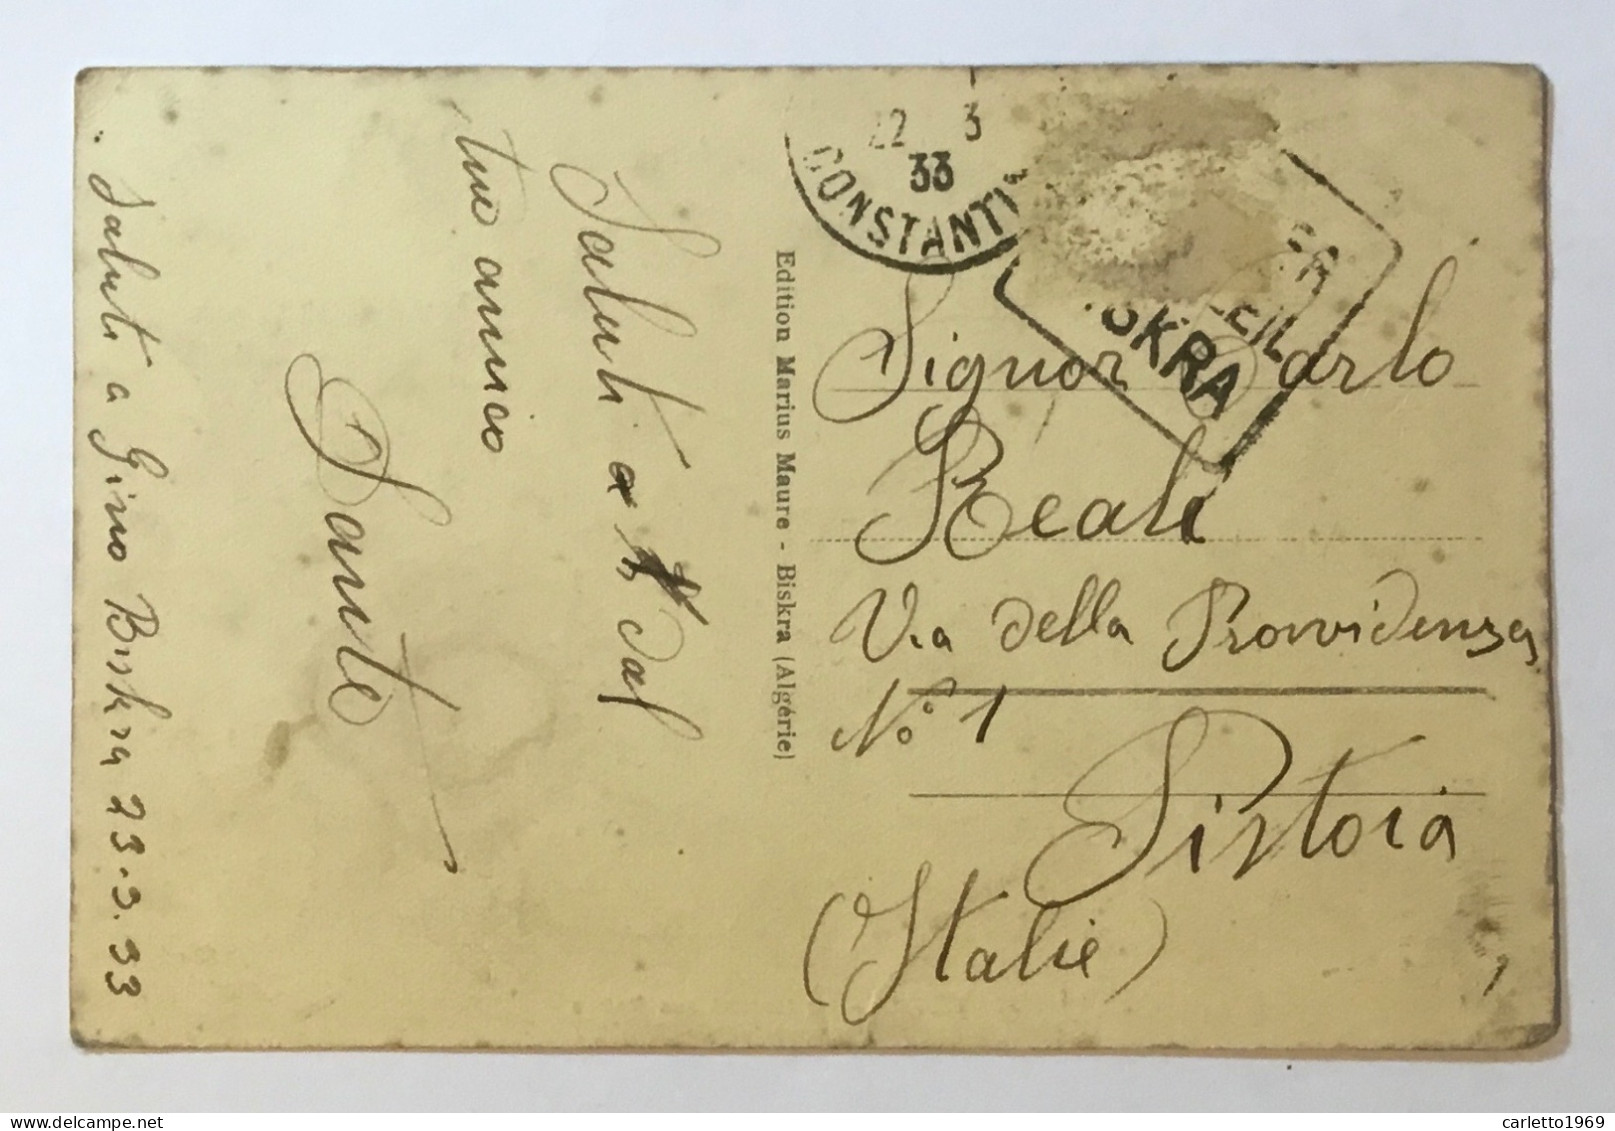 22 3
33
CONSTANTI
EIL
SKRA
Saluti a dal
tuo amico
Dante
Saluti a Gino Biskra 23.3.33
Edition Marius Maure - Biskra (Algérie)
Signor Carlo
Reali
Via della Provvidenza
N.° 1
Pistoia
(Italie)
carletto1969